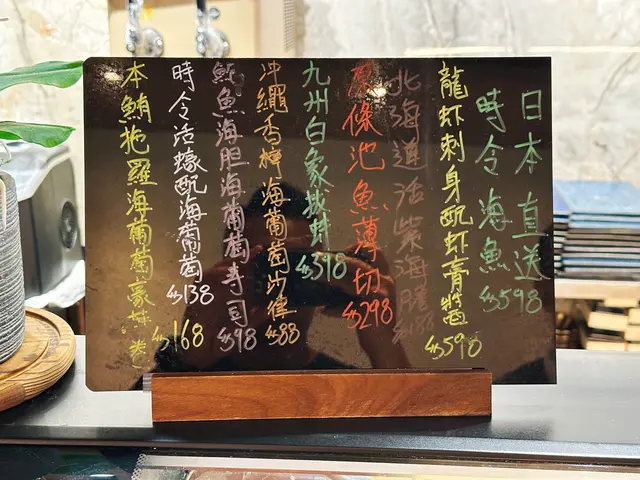 日本直送
時令海魚 $598
龍虾刺身配虾膏醬 $598
北海道活紫海膽 $188
原條池魚薄切 $298
九州白象拔蚌 $398
沖繩香檸海葡萄沙律 $88
魷魚海胆海葡萄寿司 $98
時令活蠔配海葡萄 $138
本鮪拖羅海葡萄 $168